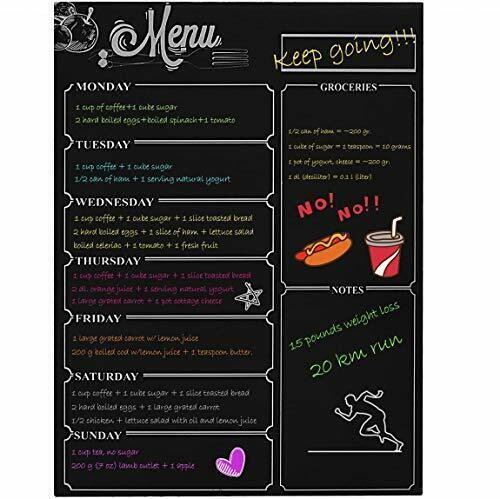 Menu
Keep going!!!
MONDAY
1 cup of coffee+1 cube sugar
2 hard boiled eggs+boiled spinach+1 tomato
TUESDAY
1 cup coffee + 1 cube sugar
1/2 can of ham + 1 serving natural yogurt
WEDNESDAY
1 cup coffee + 1 cube sugar + 1 slice toasted bread
2 hard boiled eggs + 1 slice of ham + lettuce salad
boiled celeriac + 1 tomato + 1 fresh fruit
THURSDAY
1 cup coffee + 1 cube sugar + 1 slice toasted bread
2 dl. orange juice + 1 serving natural yogurt
1 large grated carrot + 1 pot cottage cheese
FRIDAY
1 large grated carrot w/ lemon juice
200 g boiled cod w/lemon juice + 1 teaspoon butter.
SATURDAY
1 cup coffee + 1 cube sugar + 1 slice toasted bread
2 hard boiled eggs + 1 large grated carrot
1/2 chicken + lettuce salad with oil and lemon juice
SUNDAY
1 cup tea, no sugar
200 g (7 oz) lamb cutlet + 1 apple
GROCERIES
1/2 can of ham = ~200 gr.
1 cube of sugar = 1 teaspoon = 10 grams
1 pot of yogurt, cheese = ~200 gr.
1 dl (desiliter) = 0.1 l (liter)
NO!
NO!!
NOTES
15 pounds weight loss
20 km run